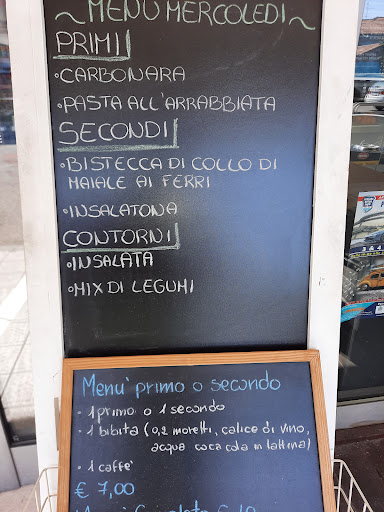 ~MENÙ MERCOLEDÌ~
PRIMI
•CARBONARA
•PASTA ALL'ARRABBIATA
SECONDI
•BISTECCA DI COLLO DI
MAIALE AI FERRI
•INSALATONA
CONTORNI
•INSALATA
•MIX DI LEGUMI
Menu' primo o secondo
• 1 primo o 1 secondo
• 1 bibita (0,2 moretti, calice di vino,
acqua coca cola in lattina)
• 1 caffe'
€ 7,00